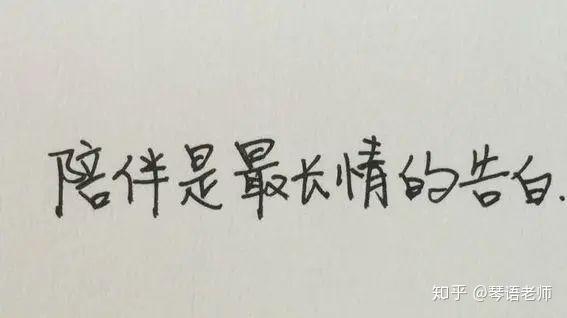 陪伴是最长情的告白.
知乎 @琴语老师